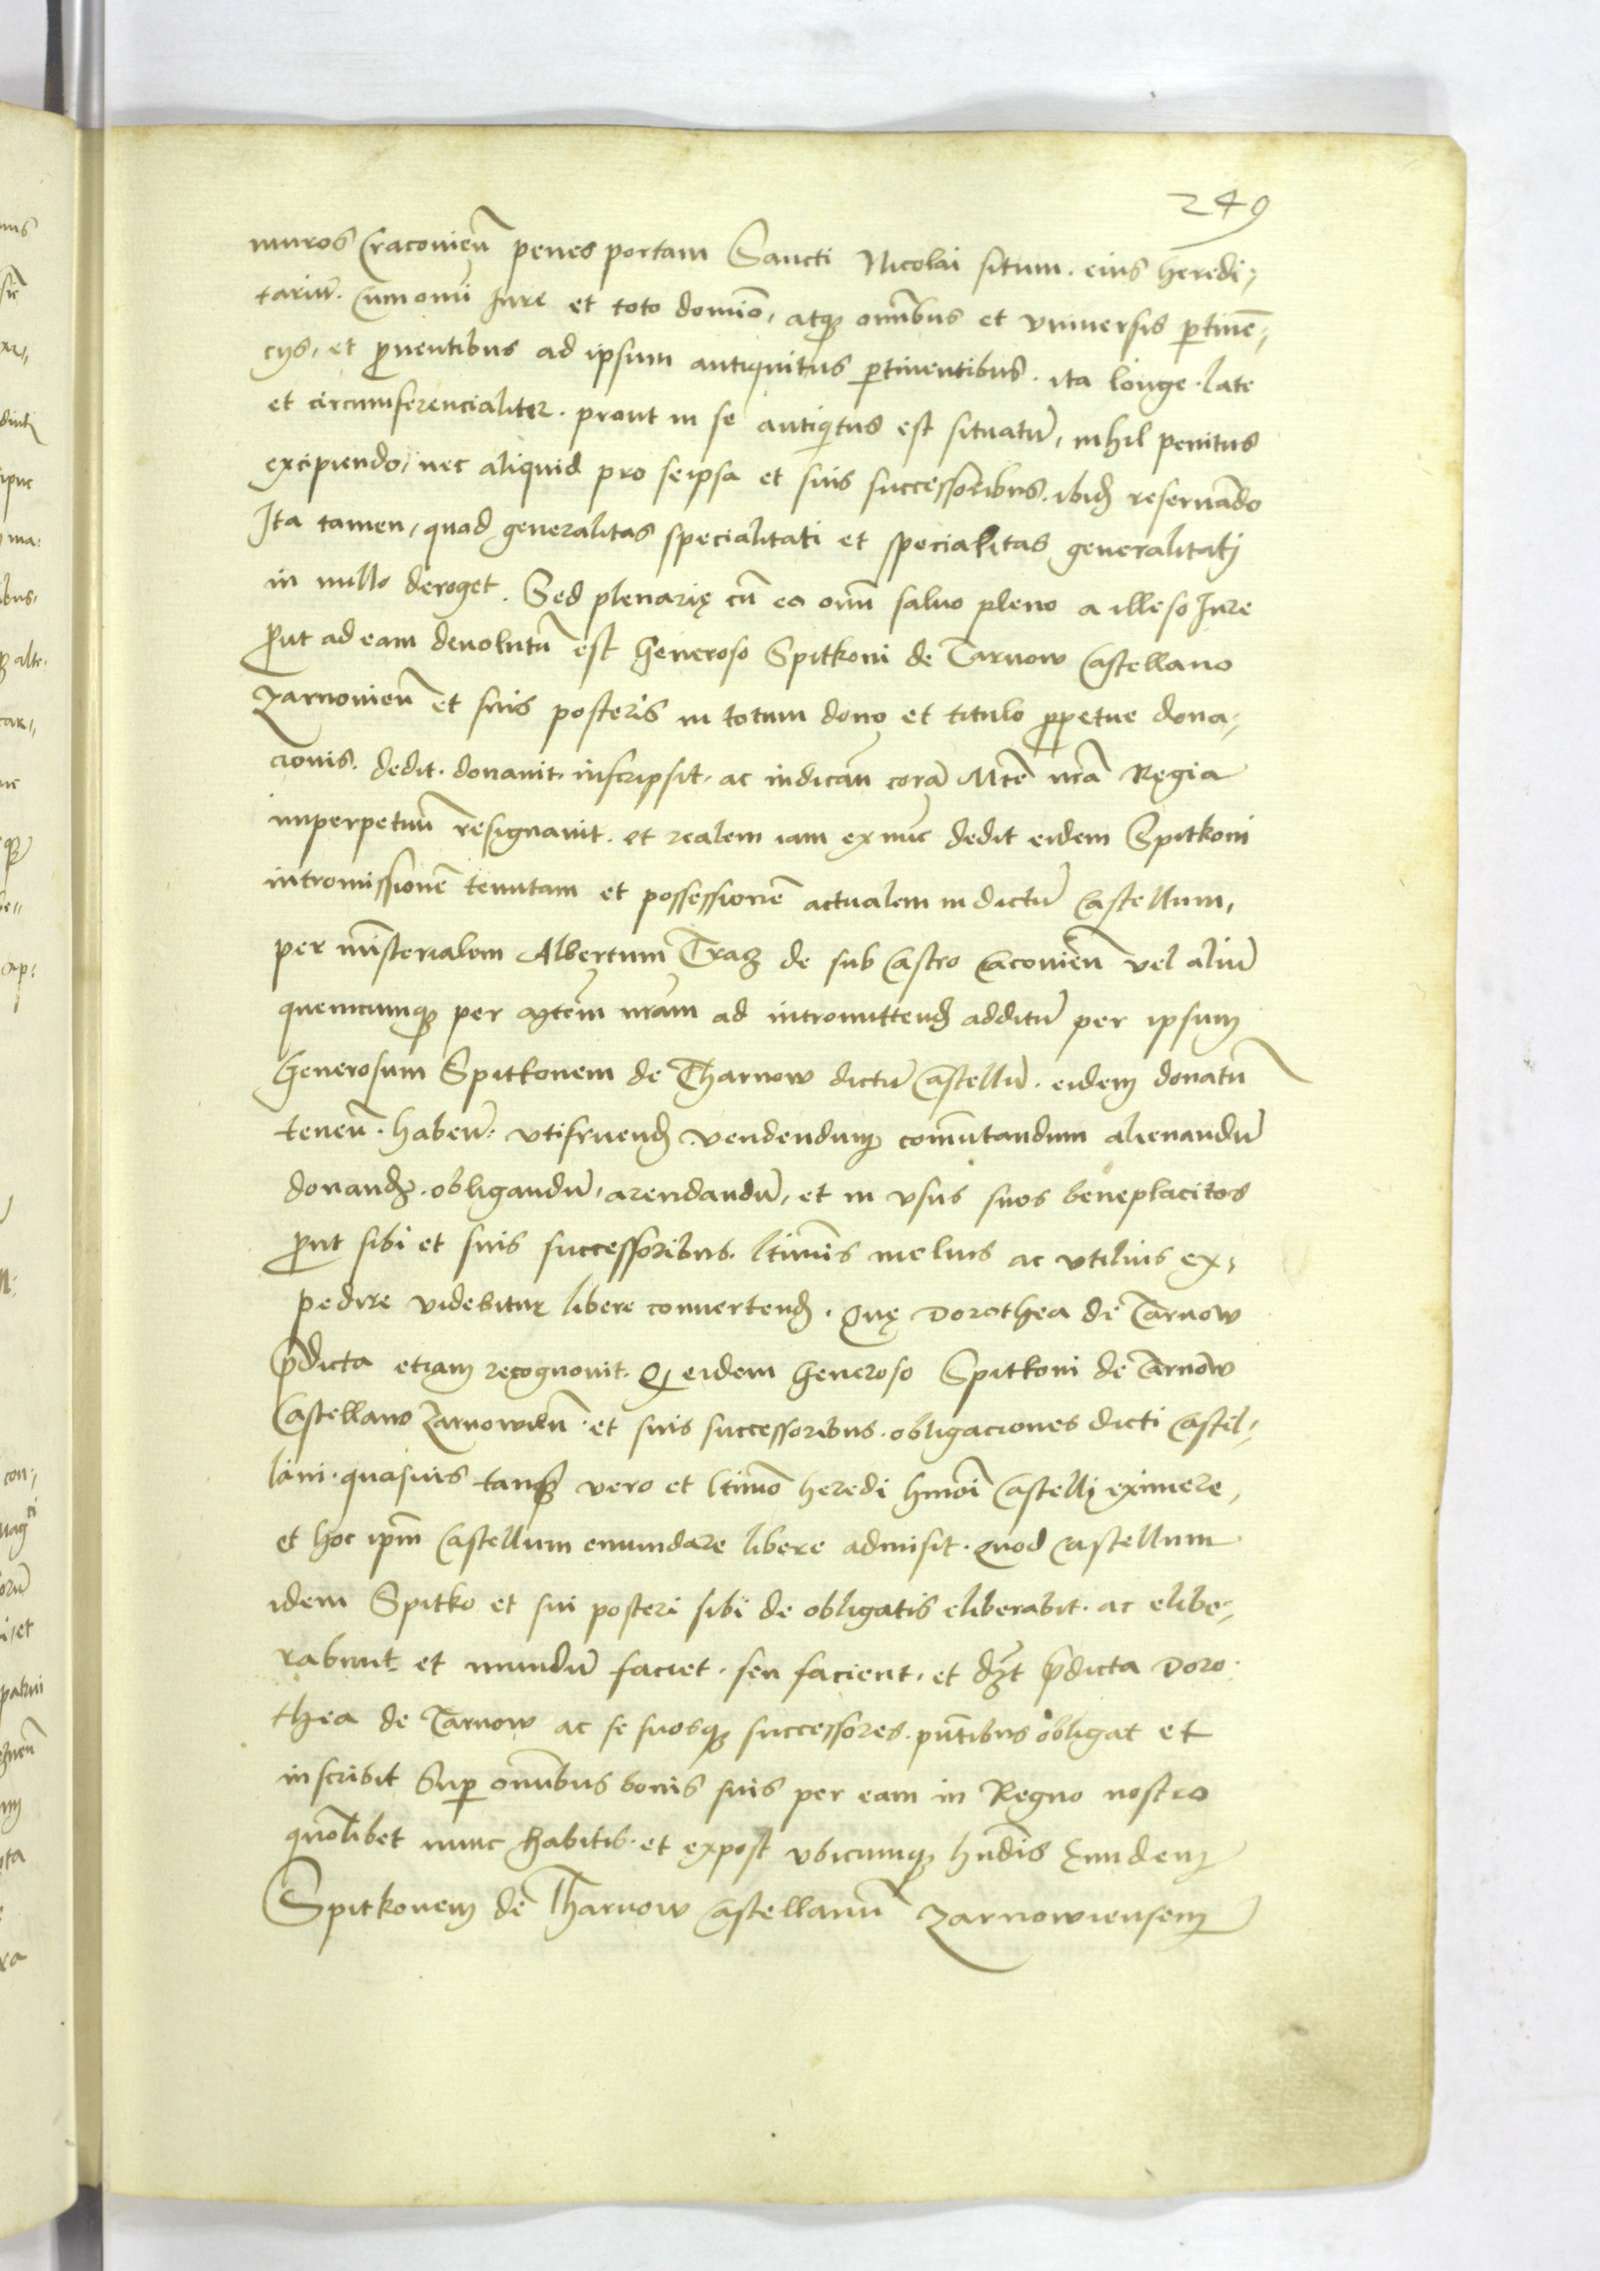 249
muros Cracovieñ penes portam Sancti Nicolai situm. eius heredi,
tariũ. Cum omni Iure et toto dominio, atqꝫ omnibus et vniversis ꝑtinẽ,
cijs, et ꝓventibus ad ipsum antiquitus ꝑtinentibus. ita longe. late
et circumferencialiter. prout in se antiqitus est situatũ, nihil penitus
excipiendo, nec aliquid pro seipsa et suis successoribus. ibiđ reseruãdo
Ita tamen, quod generalitas specialitati et specialitas generalitatj
in nullo deroget. Sed plenarię cũ eo om̃i saluo pleno a illeso Iure
ꝓut ad eam devolutũ est Generoso Spitkoni de Tarnow Castellano
Zarnovieñ et suis posteris in totum dono et titulo ꝑpetue dona,
cionis. dedit. donavit. inscripsit. ac iudicaũ corã Mte nrã Regia
imperpetuũ resignavit. et realem iam ex nũc dedit eidem Spitkoni
intromissionẽ tenutam et possessionẽ actualem in dictũ Castellum,
per ministerialem Albertum Traȝ de sub Castro Cracovieñ vel aliũ
quemcumqꝫ per nram ad intromittenđ additũ per ipsum
Generosum Spitkonem de Tharnow dictũ Castellũ. eidem donatũ
teneñ. habeñ. vtifruenđ vendendum comutandum alienandũ
donanđ. obligandũ, arendandũ, et in vsus suos beneplacitos
ꝓut sibi et suis successoribus. ltimis melius ac vtilius ex,
pedire videbitur libere convertenđ. Quę Dorothea de Tarnow
p̃dicta etiam recognovit. Q eidem Generoso Spitkoni de Tarnow
Castellano Zarnowieñ. et suis successoribus. obligaciones dicti Castel,
lani. quasuis tanqꝫ vero et ltimo heredi hmõi Castellj eximere,
et hoc ipm̃ Castellum emundare libere admisit. Quod Castellum
idem Spitko et sui posteri sibi de obligatis eliberabit. ac elibe,
rabunt et mundũ faciet. seu facient. et p̃dicta Doro
thea de Tarnow ac se suosqꝫ successores. pñtibus obligat et
inscribit Suꝑ omnibus bonis suis per eam in Regno nostro
quolibet nunc habitis. et expost vbicumqꝫ hñdis Eundem
Spitkonem de Tharnow Castellanũ Zarnowiensem